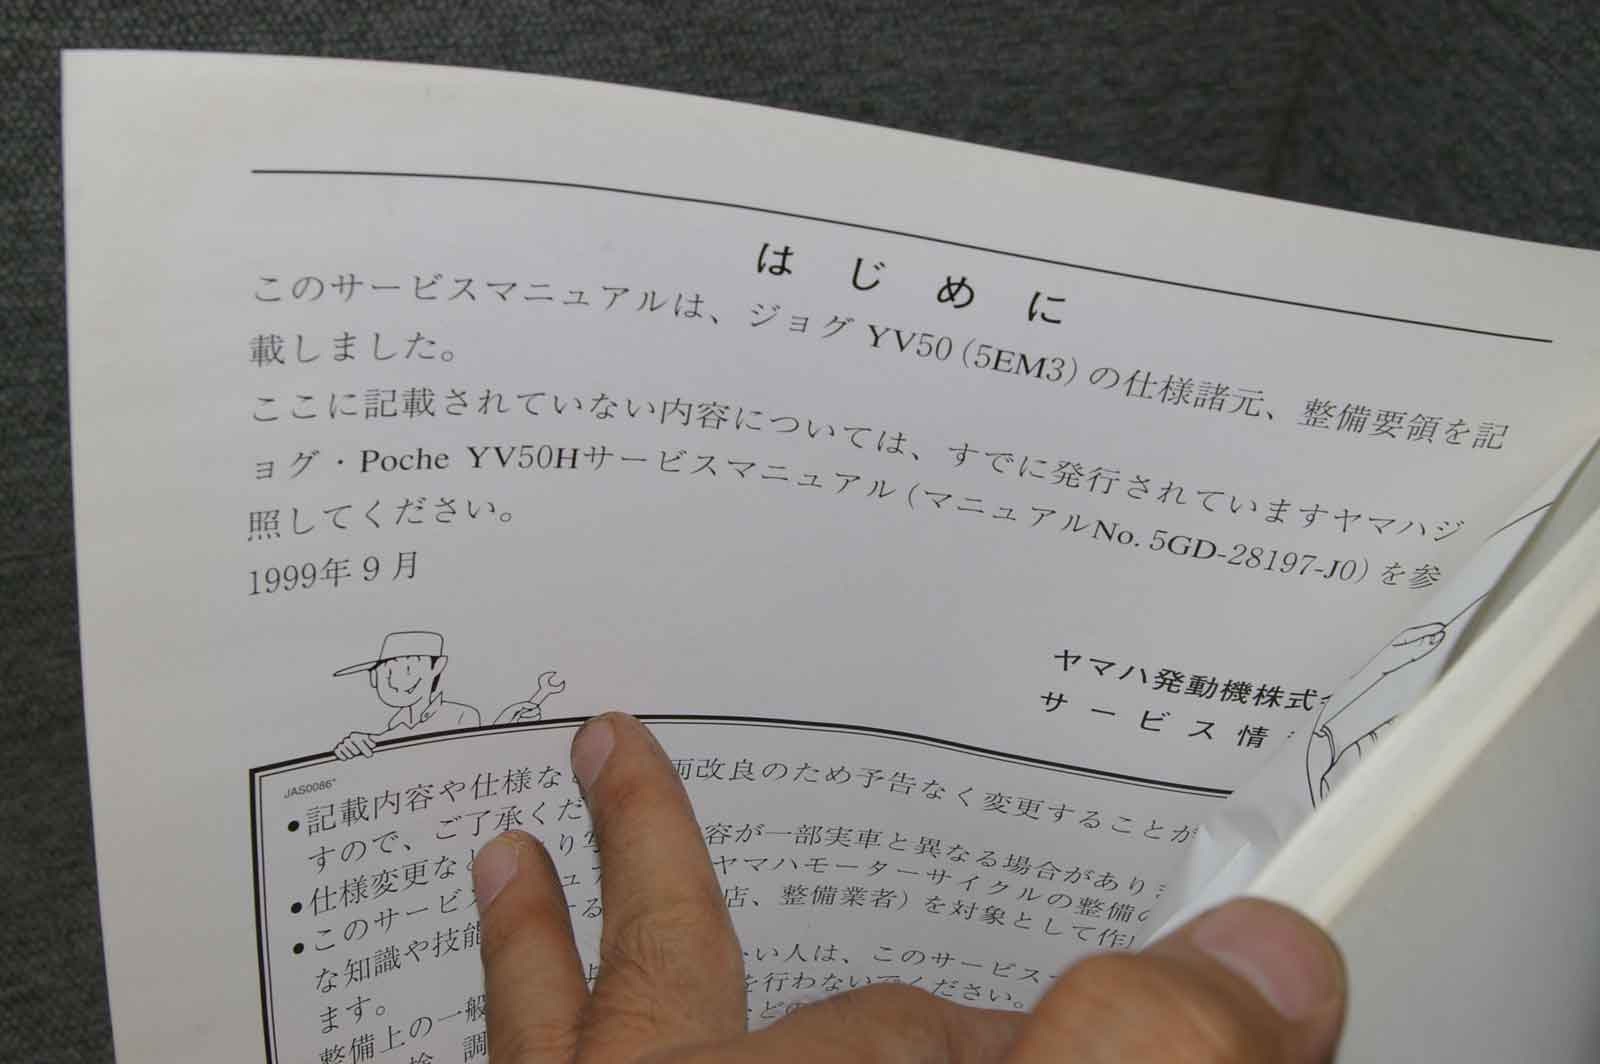 はじめに
このサービスマニュアルは、ジョグ YV50（5EM3）の仕様諸元、整備要領を記
載しました。
ここに記載されていない内容については、すでに発行されていますヤマハジ
ョグ・Poche YV50Hサービスマニュアル（マニュアルNo. 5GD-28197-J0）を参
照してください。
1999年9月
ヤマハ発動機株式
サービス情
JAS0086*
●記載内容や仕様な 改良のため予告なく変更することが
すので、ご了承くだ
●仕様変更など り 容が一部実車と異なる場合があり
●このサービス ヤマハモーターサイクルの整備の
店、整備業者）を対象として作
な知識や技能 い人は、このサービス
ます。 を行わないでください。
整備上の一般 どの
調